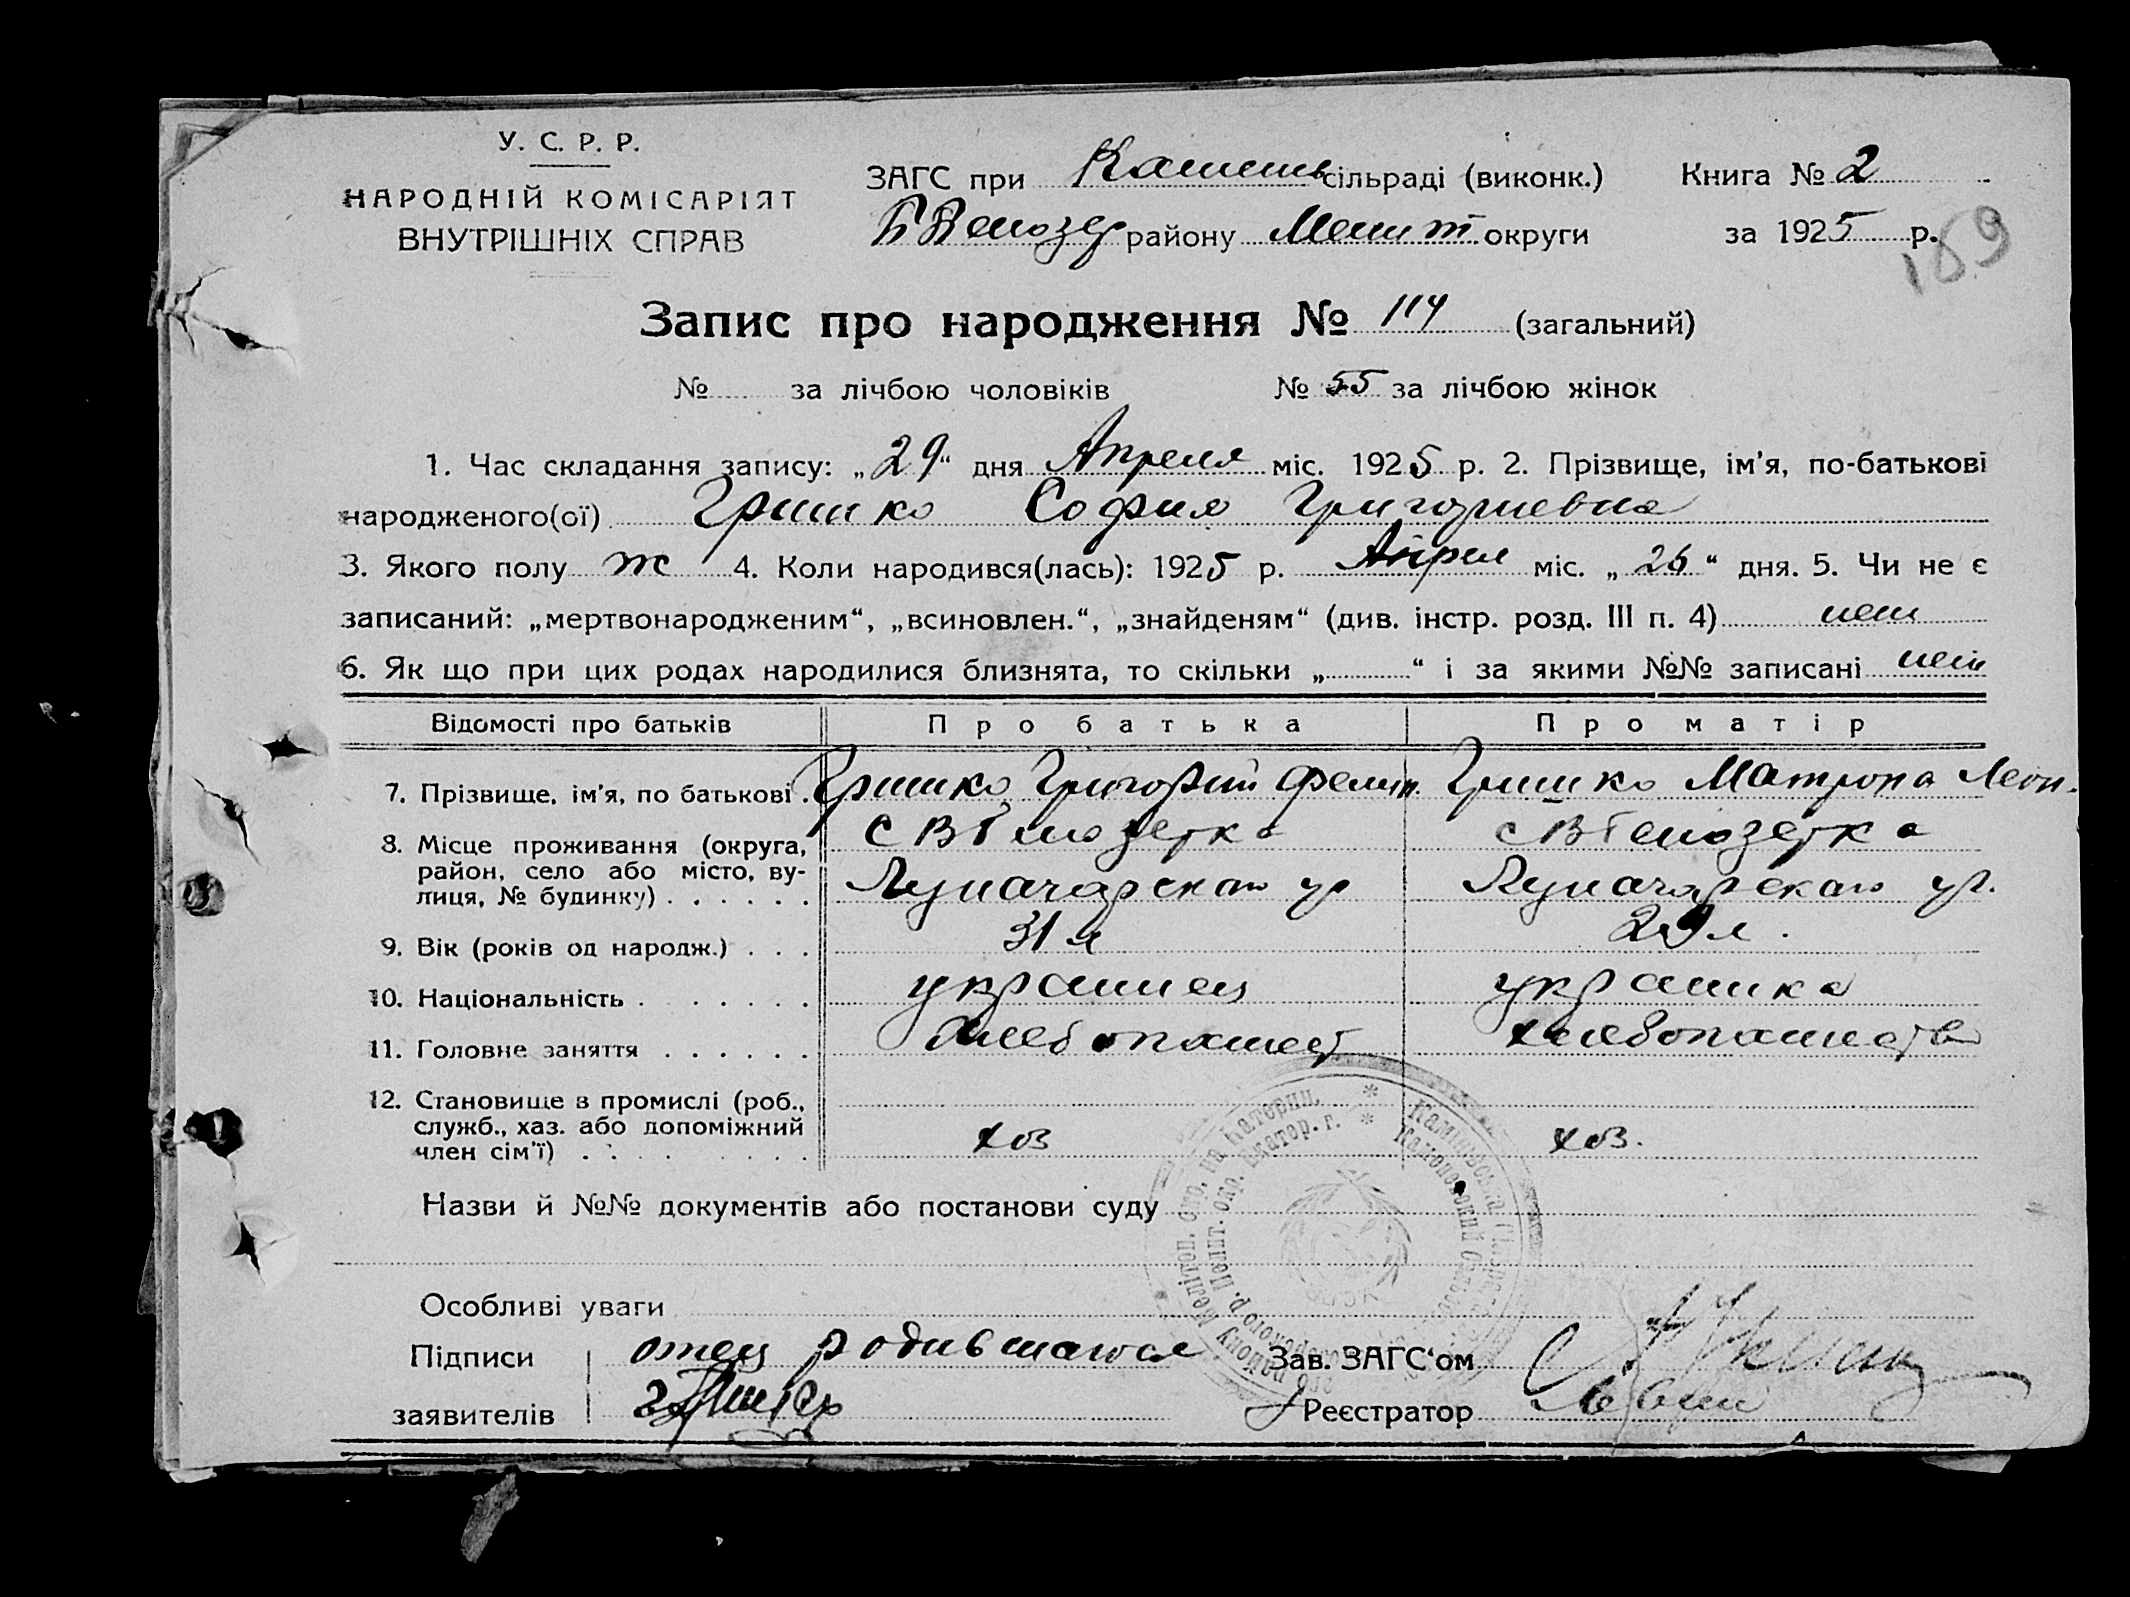 У. С. Р. Р.
НАРОДНІЙ КОМІСАРІЯТ
ВНУТРІШНІХ СПРАВ
ЗАГС при сільраді (виконк.)
району Мелит. округи
Книга № 2
за 1925 р.
Запис про народження № 114 (загальний)
№ за лічбою чоловіків № 55 за лічбою жінок
1. Час складання запису: „29“ дня Апреля міс. 1925 р. 2. Прізвище, ім'я, по-батькові
народженого(ої) Гришко София Григориевна
3. Якого полу ж 4. Коли народився(лась): 1925 р. Апрел міс. „26“ дня. 5. Чи не є
записаний: „мертвонародженим“, „всиновлен.“, „знайденям“ (див. інстр. розд. III п. 4) нет
6. Як що при цих родах народилися близнята, то скільки „ “ і за якими №№ записані нет
Відомості про батьків Про батька Про матір
7. Прізвище, ім'я, по батькові . Гришко Григорий Гришко Матрона Леон.
8. Місце проживання (округа,
район, село або місто, ву-
лиця, № будинку) . . . . . .
Луначарская ул Луначарская ул.
9. Вік (років од народж.) . . . 31 л 29 л.
10. Національність . . . . . . . украинец украинка
11. Головне заняття . . . . . .
12. Становище в промислі (роб.,
служб., хаз. або допоміжний
член сім'ї) . . . . . . . . .
хоз хоз.
Назви й №№ документів або постанови суду
Особливі уваги
Підписи отец родившагося
заявителів
Зав. ЗАГС'ом
Реєстратор